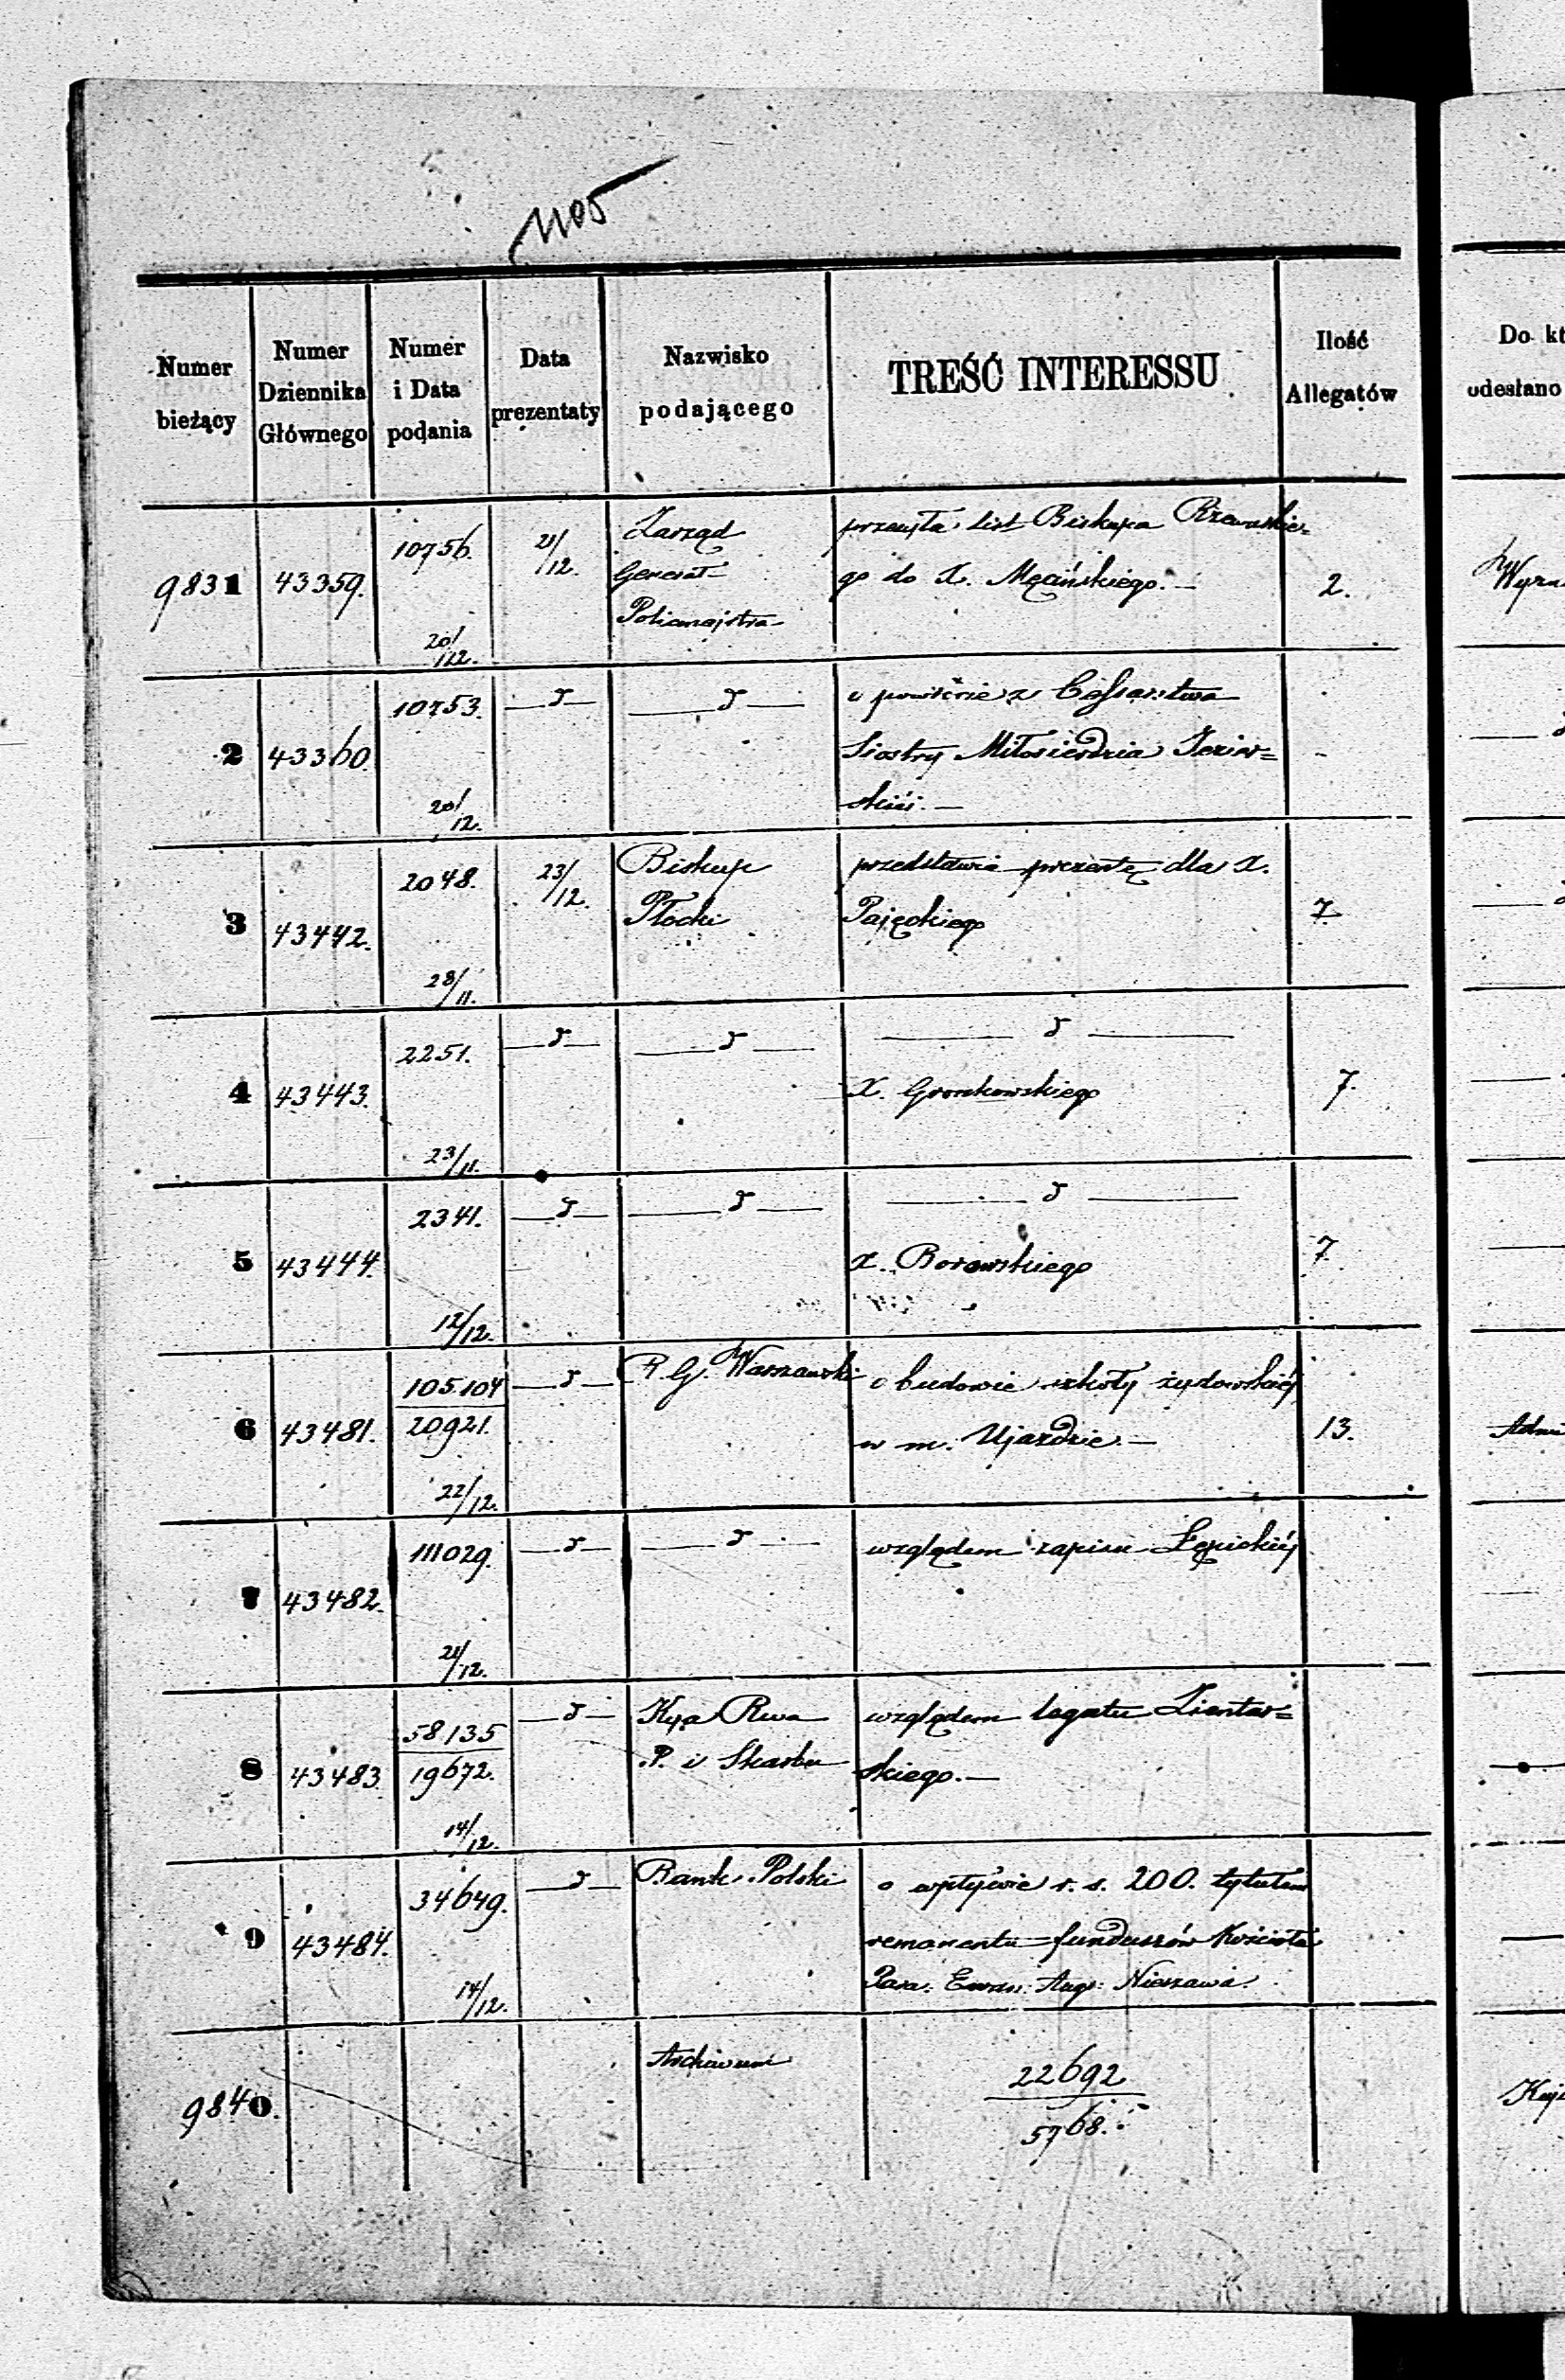 1105
Numer bieżący
Numer Dziennika Głównego
Numer i Data podania
Data prezentaty
Nazwisko podającego
TREŚĆ INTERESSU
Ilość Allegatów
Do kt
odesłano
9831 43359. 10756. 20/12. 21/12. Zarząd przesyła list Biskupa Rzewuskie- 2.
Generał- go do X. Męcińskiego.—
Policmajstra
2 43360. 10753. 20/12. —d— —d— o powrócie z Cesarstwa -
Siostry Miłosierdzia Jezior=
skiéj.—
3 43442. 2048. 28/11. 23/12. Biskup przedstawia prezentę dla X. 7.
Płocki Pajęckiego
4 43443. 2251. 23/11. —d— —d— —d— 7.
X. Gronkowskiego
5 43444. 2341. 12/12. —d— —d— —d— 7.
X. Borowskiego
6 43481. 105104 20921. 22/12. —d— R. G. Warszawski o budowie szkoły żydowskiéj 13.
w m. Ujazdzie.—
7 43482. 111029. 21/12. —d— —d— względem zapisu Łępickiéj
8 43483. 58135 19672. 14/12. —d— Kya Rwa względem legatu Zientar=
P. i Skarbu skiego.—
9 43484. 34649. 14/12. —d— Bank Polski o wpływie r. s. 200. tytułem
remanentu funduszów Kościoła
Para. Ewan: Aug: Nieszawa.
9840. Archiwum 22692
5768.